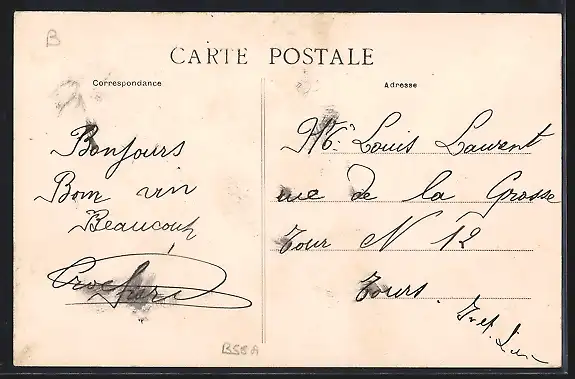 B
CARTE POSTALE
Correspondance
Adresse
Bonjours
Bom vin
Beaucoup
Mr. Louis Laurent
rue De la Grosse
Tour N 12
Tours.
Indt. L
B58A